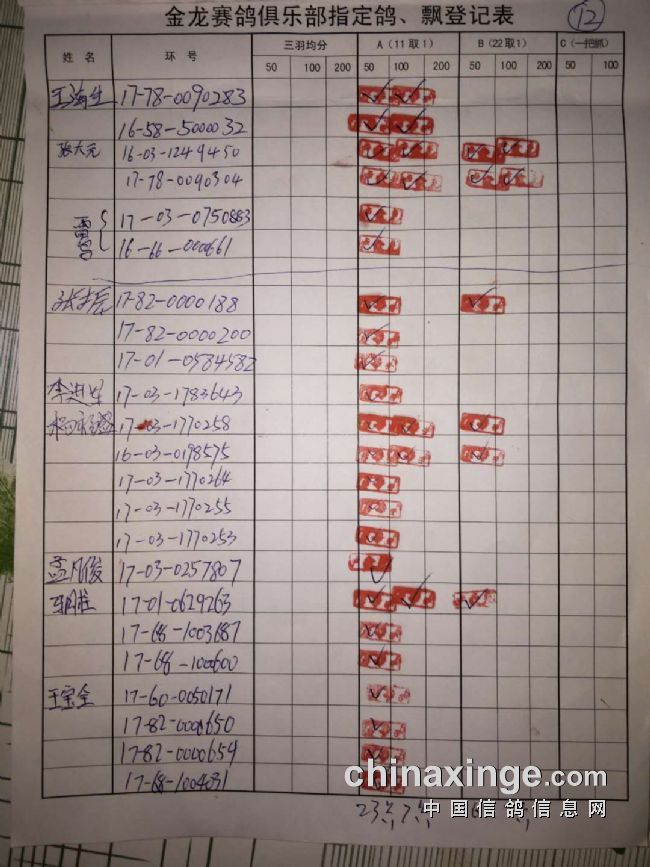 金龙赛鸽俱乐部指定鸽、飘登记表
12
姓名 环号 三羽均分 A（11取1） B（22取1） C（一把抓）
50 100 200 50 100 200 50 100 200 50 100
王海生 17-78-0090283
16-58-5000032
张大元 16-03-1249450
17-78-0090304
17-03-0750883
16-66-000661
17-82-0000188
17-82-0000200
17-01-0584582
李进军 17-03-1783643
17-03-1770258
16-03-0198575
17-03-1770264
17-03-1770255
17-03-1770253
孟凡俊 17-03-0257807
17-01-0629263
17-68-1003687
17-68-100600
王宝全 17-60-0050171
17-82-0000650
17-82-0000654
17-68-1004031
chinaxinge.com
中国信鸽信息网